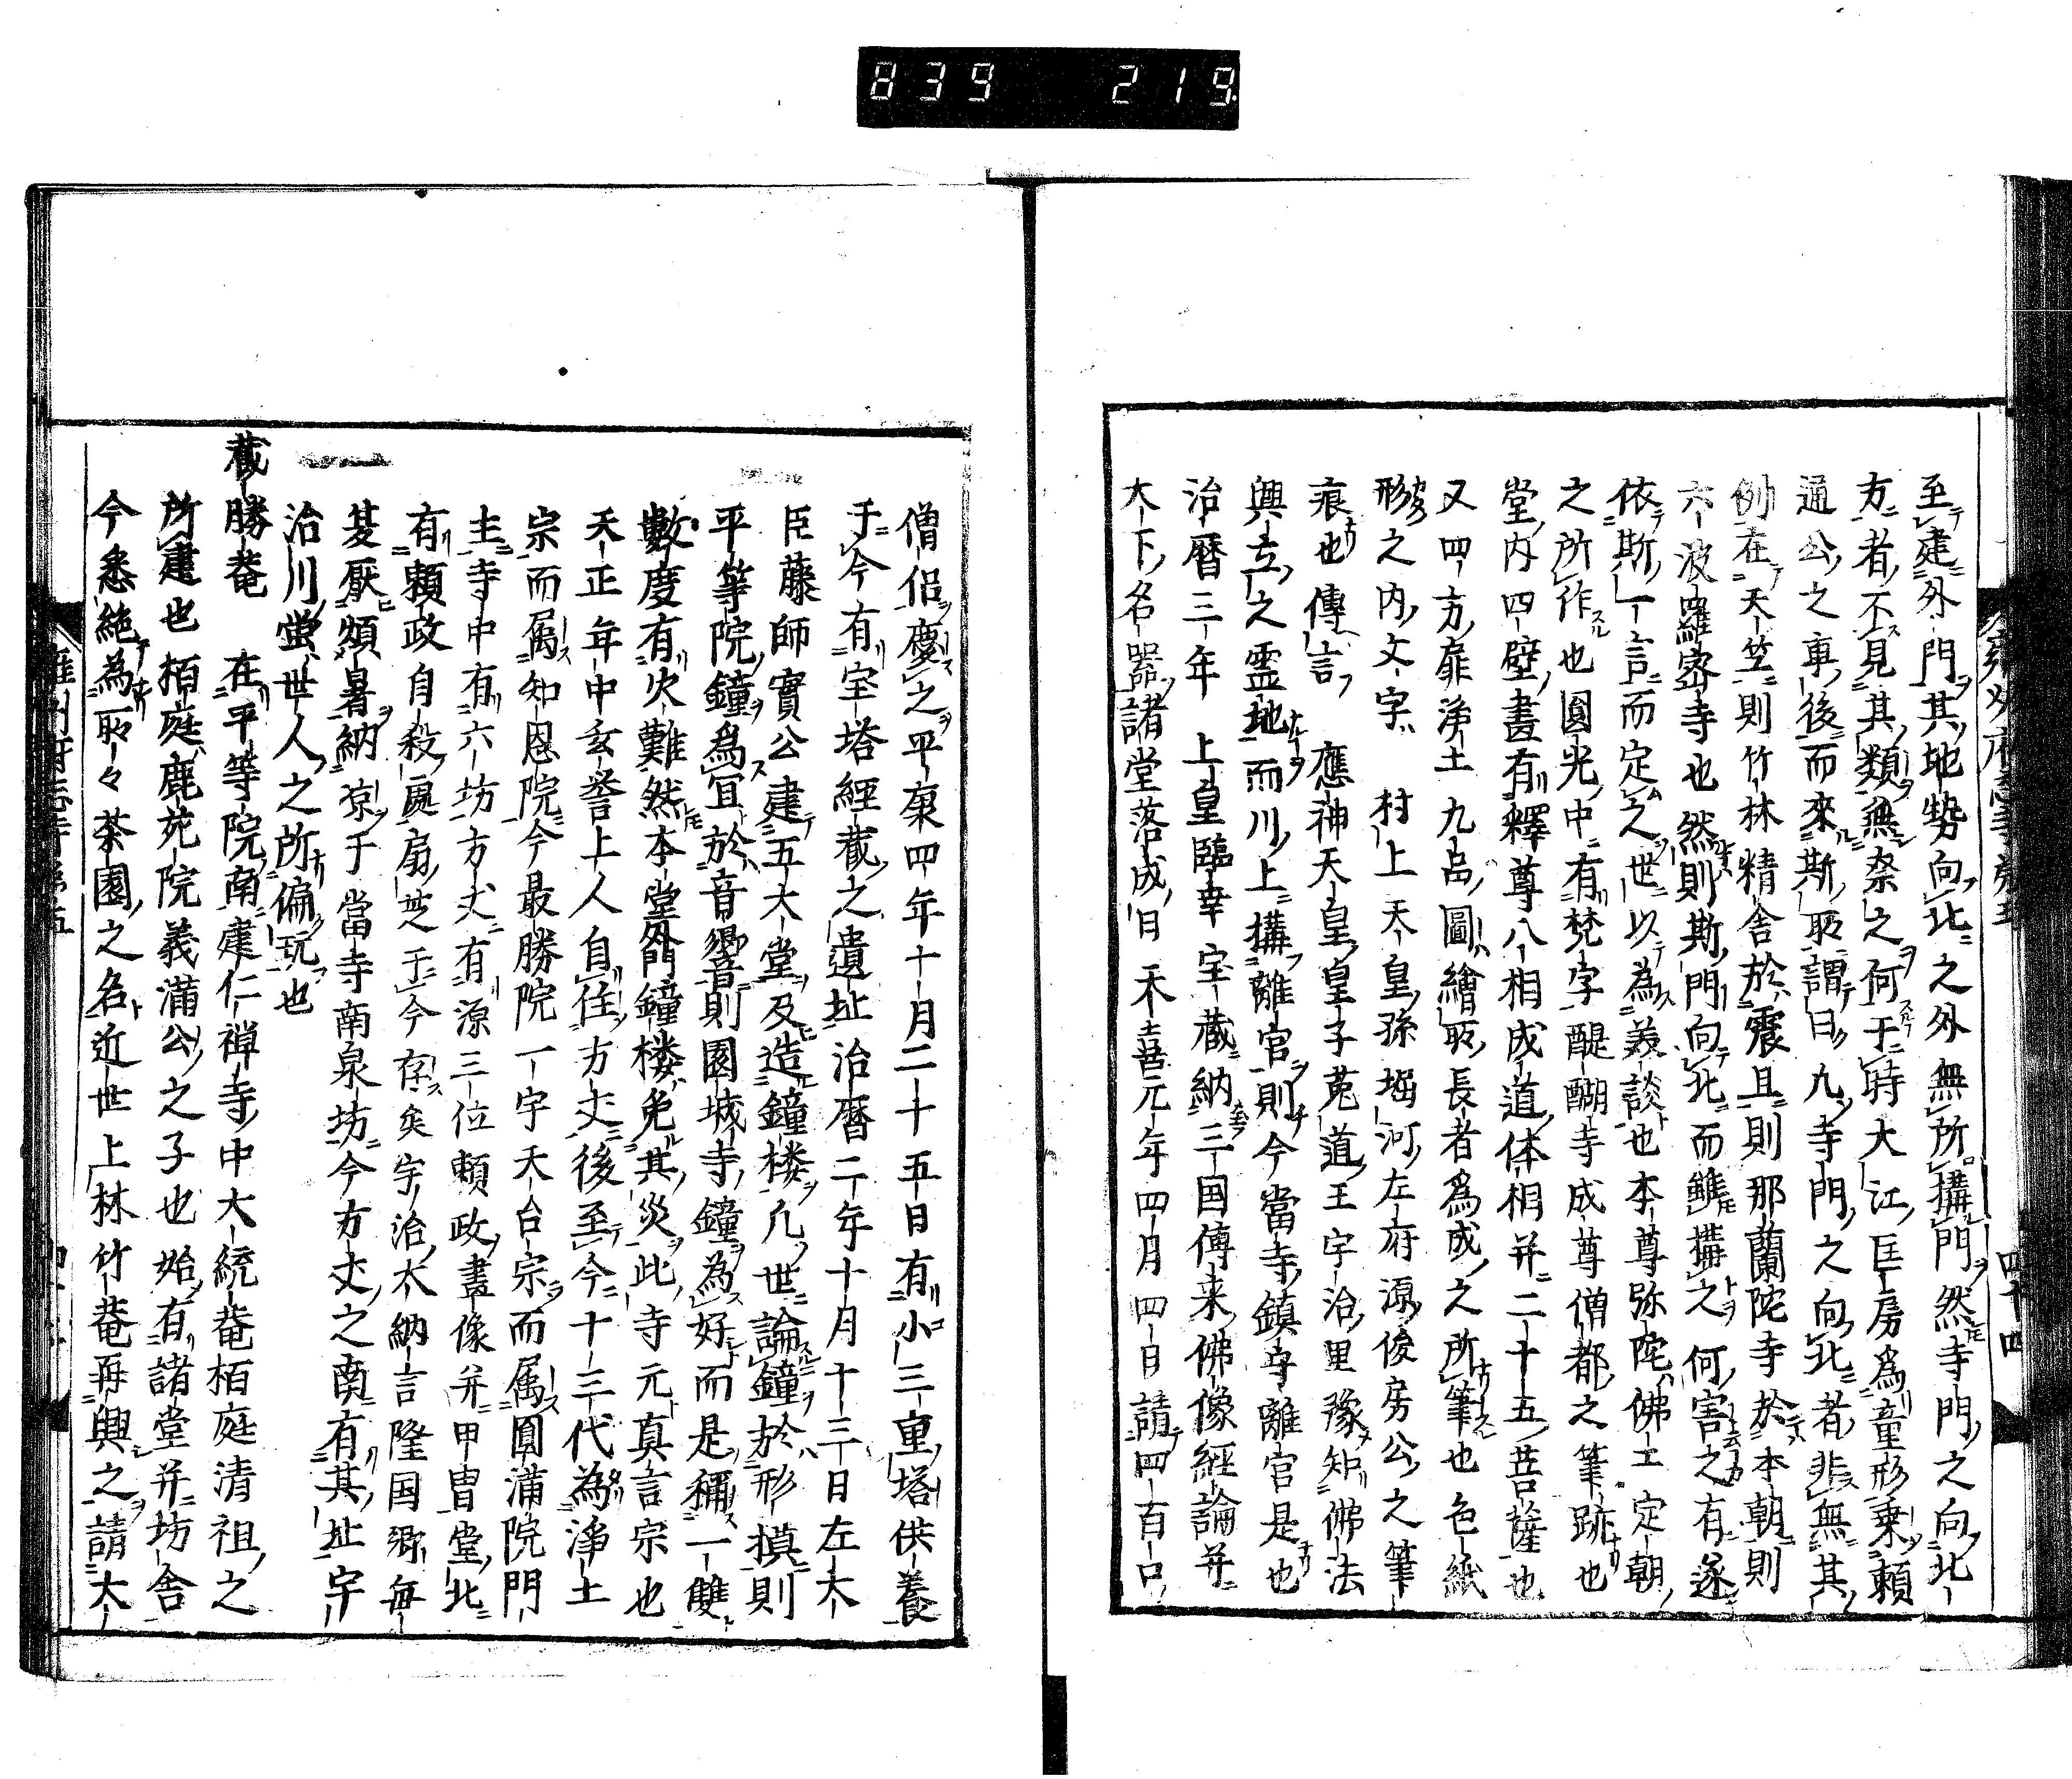 839 219
至建外門其地勢向北之外無所搆門然寺門之向北
方者不見其類無奈之何于時大江匡房爲童形乗頼
通公之車後而來斯耴謂曰凢寺門之向北者非無其
例在天竺則竹林精舎於震旦則那蘭陀寺於本朝則
六波羅宻寺也然則斯門向北而雖搆之何害之有遂
依斯一言而定之世以為羙談也本尊弥陀佛工定朝
之所作也圓光中有梵字醍醐寺成尊僧都之筆跡也
堂内四壁畫有釋尊八相成道体相并二十五菩薩也
又四方扉浄土九品圖繪耴長者爲成之所筆也色紙
形之内文字 村上天皇孫堀河左府源俊房公之筆
痕也傳言 應神天皇皇子菟道王宇治里豫知佛法
興立之霊地而川上搆離宮則今當寺鎮守離宮是也
治暦三年 上皇臨幸宝蔵納三国傳来佛像經論并
大下名噐諸堂落成日 天喜元年四月四日請四百口
四十四
僧侶慶之平康四年十月二十五日有小三重塔供養
于今有宝塔經蔵之遺址治暦二年十月十三日左大
臣藤師實公建五大堂及造鐘楼凢世論鐘於形摸則
平等院鐘爲冝於音響則園城寺鐘為好而是稱一雙
數度有火難然本堂外門鐘楼免其災此寺元真言宗也
天正年中玄誉上人自住方丈後至今十三代為浄土
宗而属知恩院今最勝院一宇天台宗而属圓蒲院門
主寺中有六坊方丈有源三位頼政畫像并甲冑堂北
有頼政自殺処扇芝于今存矣宇治大納言隆国卿毎
夏厭煩暑納凉于當寺南泉坊今方丈之南有其址宇
治川蛍世人之所偏玩也
蔵勝菴 在平等院南建仁禅寺中大統菴栢庭清祖之
所建也栢庭鹿苑院義満公之子也始有諸堂并坊舎
今悉絶為耴々茶園之名近世上林竹菴再興之請大